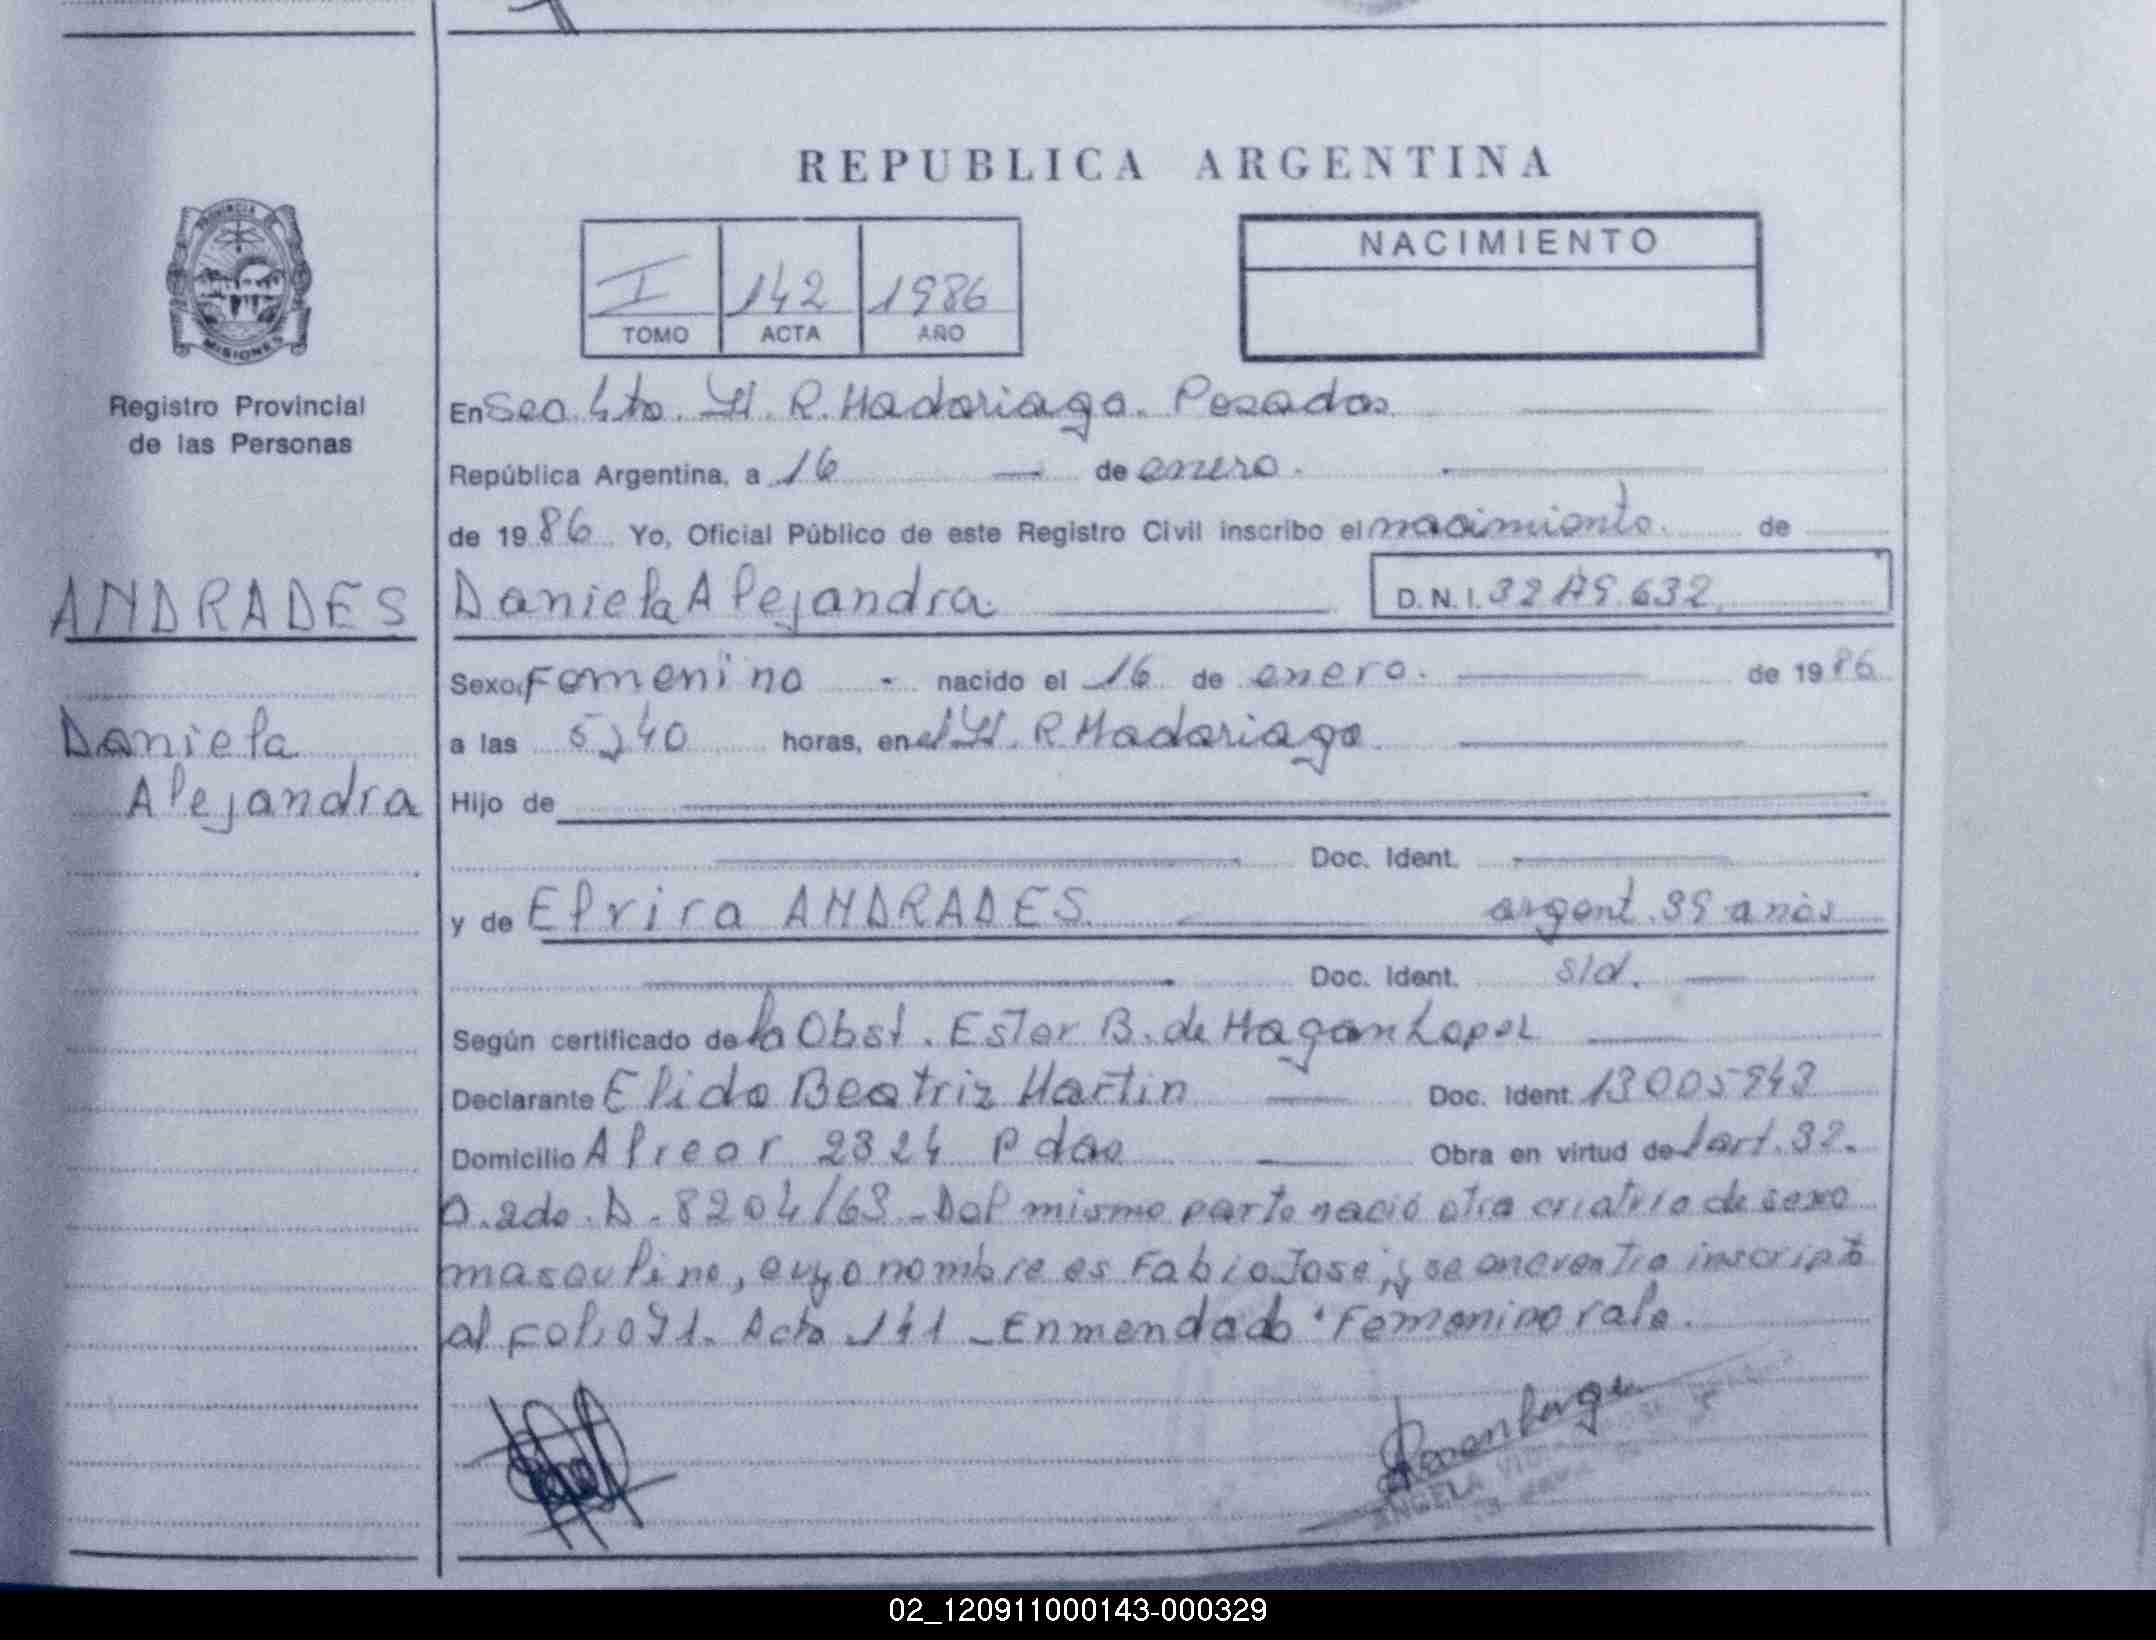 REPUBLICA ARGENTINA
PROVINCIA
MISIONES
I 142 1986
TOMO ACTA AÑO
NACIMIENTO
Registro Provincial
de las Personas
ANDRADES
Daniela
Alejandra
En Sec. 4ta. H. R. Madariaga. Posadas
República Argentina, a 16 de enero.
de 1986 Yo, Oficial Público de este Registro Civil inscribo el nacimiento. de
Daniela Alejandra. D.N.I. 632
Sexo Femenino - nacido el 16 de enero. de 1986
a las 5,40 horas, en el H. R Madariaga.
Hijo de
Doc. Ident.
y de Elvira ANDRADES argent. 39 años
Doc. Ident. s/d.
Según certificado de la Obst. Ester B. de
Declarante Elida Beatriz Martin Doc. Ident. 13005943
Domicilio Alvear 2324 Pdas Obra en virtud del art. 32.
D. 8204/63 - Del mismo parto nació otra criatura de sexo
masculino, cuyo nombre es Fabio José, y se encuentra inscripto
al folio 71. Acta 141 - Enmendado "Femenino vale.
ANGELA
02_120911000143-000329